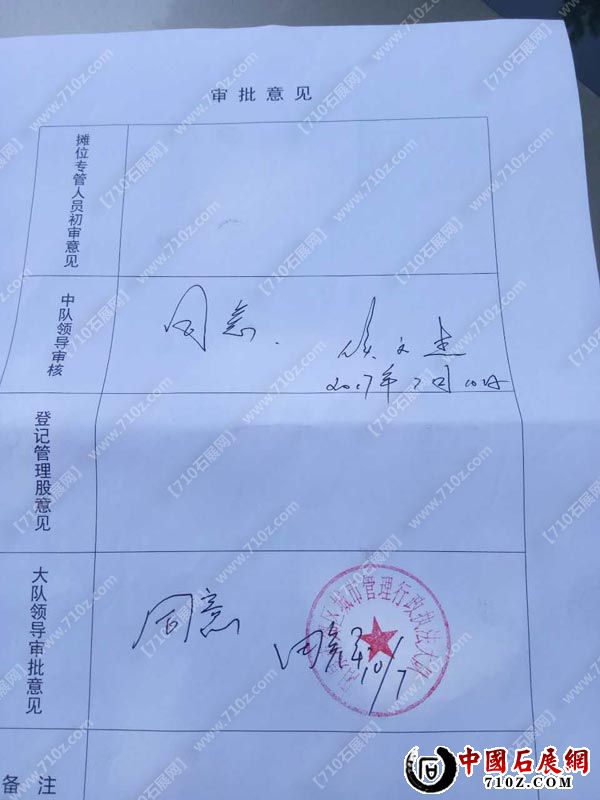 审批意见
摊位专管人员初审意见
中队领导审核
同意.
2017年7月10日
登记管理股意见
大队领导审批意见
同意
10/7
区城市管理行政执法大队
备注
【710石展网】www.710z.com
中國石展網
710Z.COM